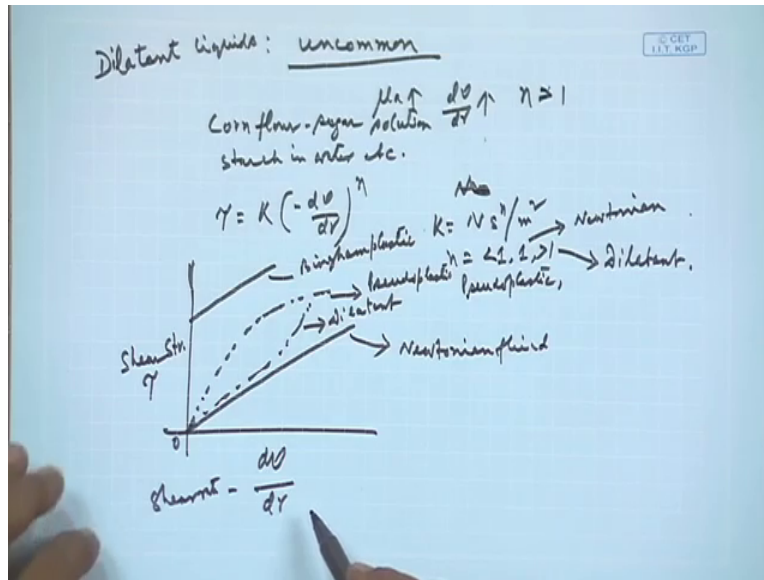 Dilatant liquids: uncommon
© CET
I.I.T. KGP
μa↑ dv/dr ↑ n > 1
Corn flour - sugar solution
starch in water etc.
τ = K (-dv/dr)^n K = N s^n/m²
n = <1, 1, >1
Newtonian.
Dilatant.
Pseudoplastic,
Bingham plastic
Pseudoplastic
Dilatant
Newtonian fluid
Shear Str.
τ
0
Shear rt - dv/dr